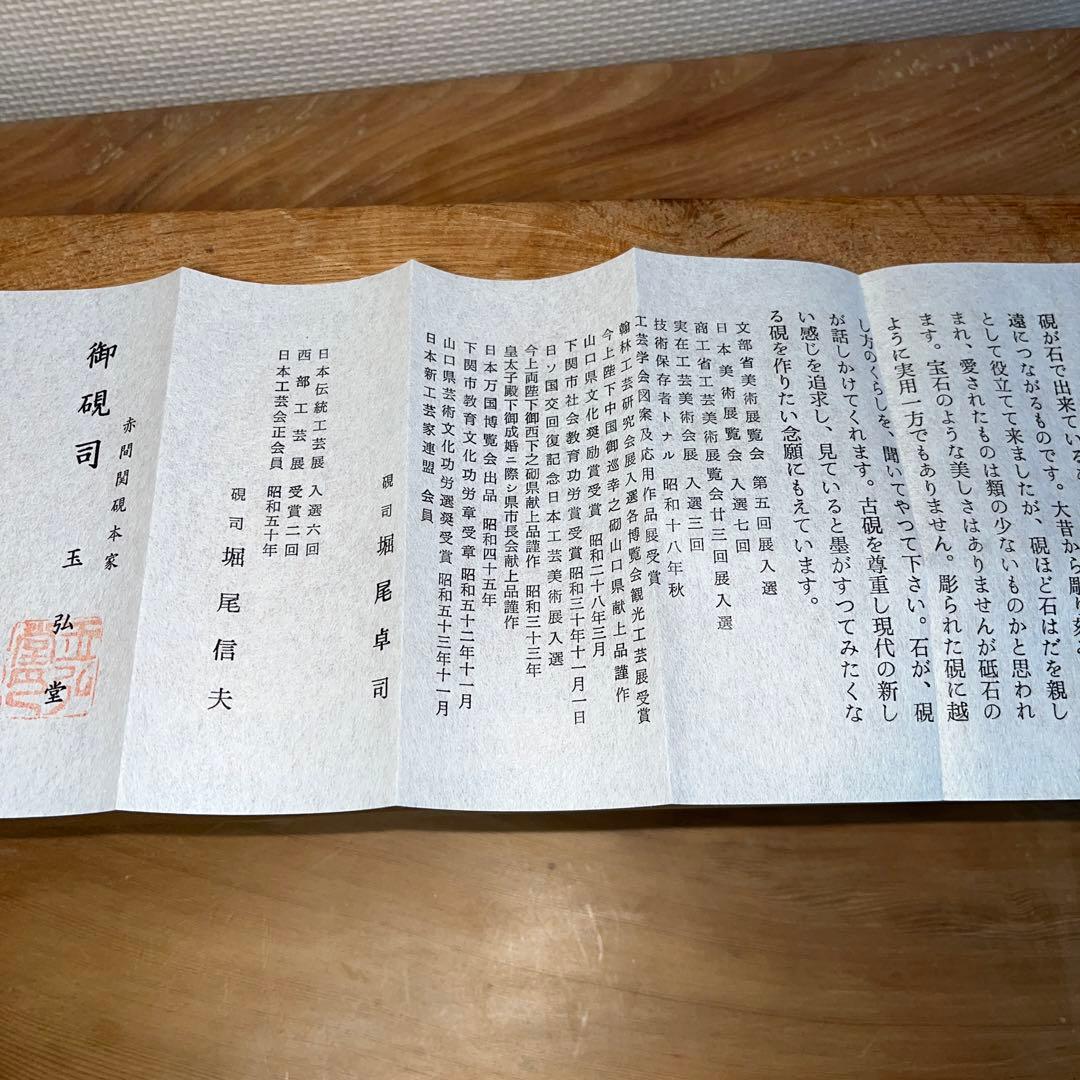 硯が石で出来ていると
遠につながるものです。大昔から彫り刻
として役立てて来ましたが、硯ほど石はだを親し
まれ、愛されたものは類の少ないものかと思われ
ます。宝石のような美しさはありませんが砥石の
ように実用一方でもありません。彫られた硯に越
し方のくらしを、聞いてやつて下さい。石が、硯
が話しかけてくれます。古硯を尊重し現代の新し
い感じを追求し、見ていると墨がすつてみたくな
る硯を作りたい念願にもえています。
文部省美術展覧会 第五回展入選
日本美術展覧会 入選七回
商工省工芸美術展覧会廿三回展入選
実在工芸美術会展 入選三回
技術保存者トナル 昭和十八年秋
工芸学会図案及応用作品展受賞
翰林工芸研究会展入選各博覧会観光工芸展受賞
今上陛下中国御巡幸之砌山口県献上品謹作
山口県文化奨励賞受賞 昭和二十八年三月
下関市社会教育功労賞受賞昭和三十年十一月一日
日ソ国交回復記念日本工芸美術展入選
今上両陛下御西下之砌県献上品謹作 昭和三十三年
皇太子殿下御成婚ニ際シ県市長会献上品謹作
日本万国博覧会出品 昭和四十五年
下関市教育文化功労章受章昭和五十二年十一月
山口県芸術文化功労選奨受賞昭和五十三年十一月
日本新工芸家連盟 会員
硯司 堀尾卓司
日本伝統工芸展 入選六回
西部工芸展 受賞二回
日本工芸会正会員 昭和五十年
硯司 堀尾信夫
赤間関硯本家
御硯司 玉弘堂